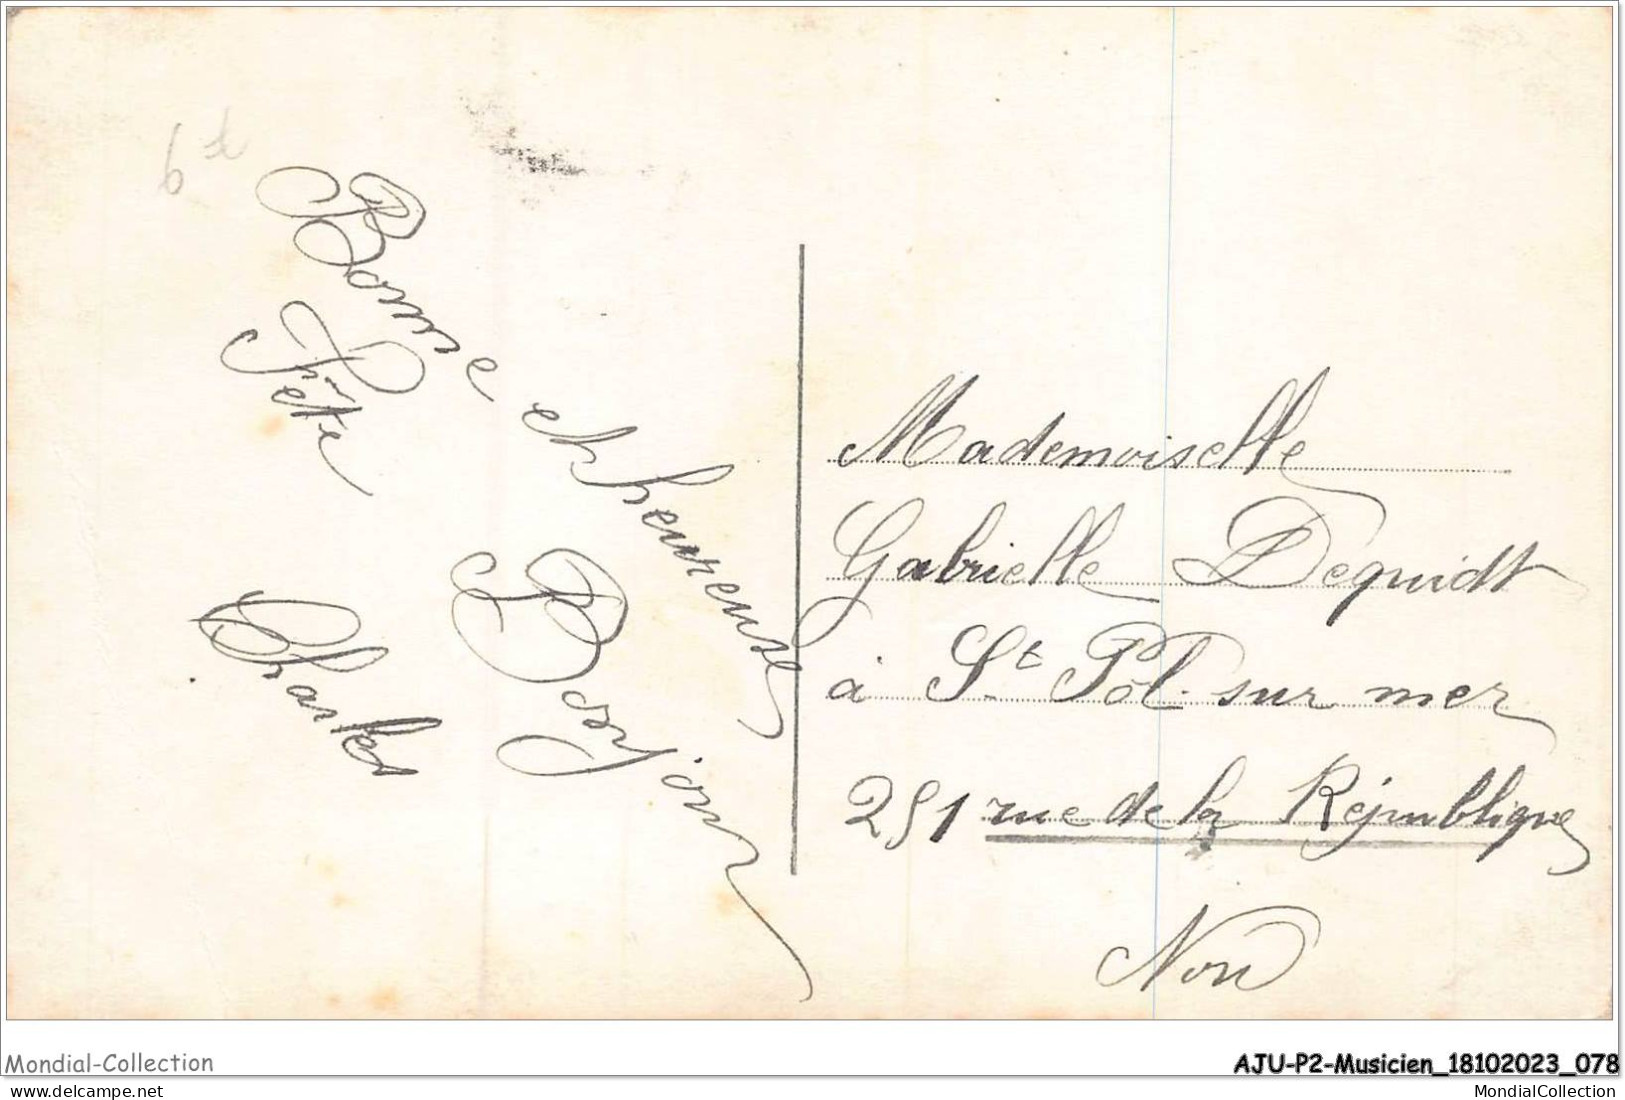 6f
Bonne et heureuse
Fête
Bonjour
Charles
Mademoiselle
Gabrielle Dequidt
à St Pol sur mer
251 rue de la République
Nord
Mondial-Collection
AJU-P2-Musicien_18102023_078
delcampe.net
MondialCollection